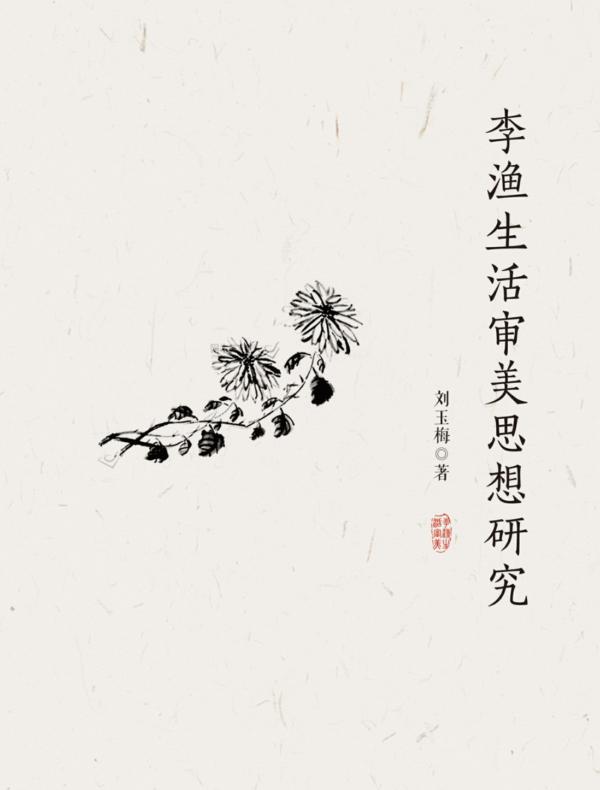 李渔生活审美思想研究
刘玉梅◎著